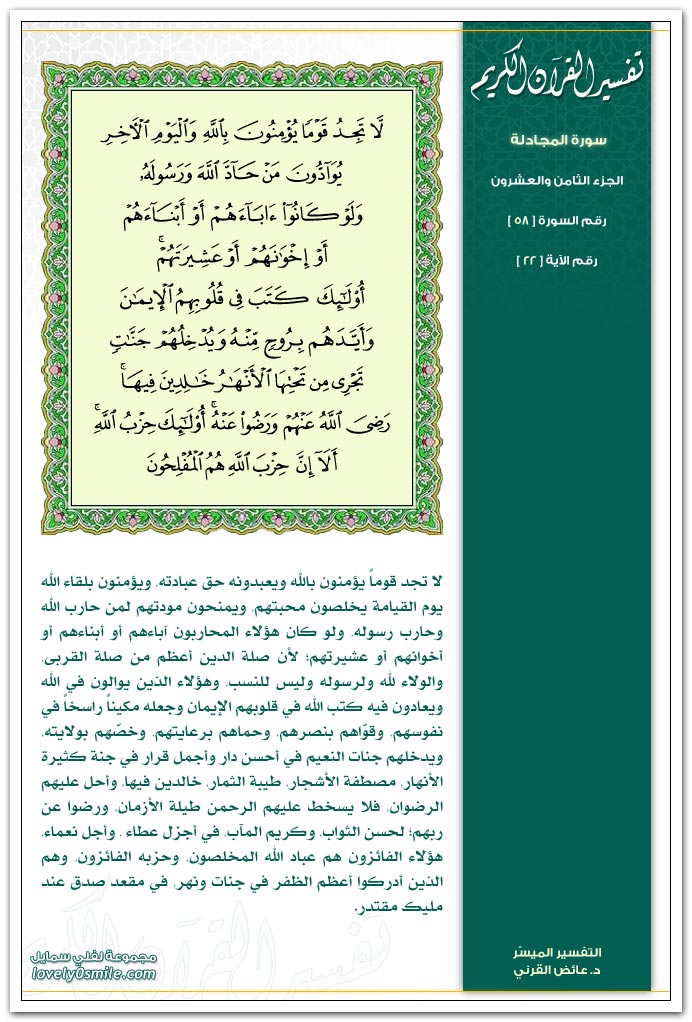 تفسير القرآن الكريم
سورة المجادلة
الجزء الثامن والعشرون
رقم السورة [ ٥٨ ]
رقم الآية [ ٢٢ ]
لَّا تَجِدُ قَوْمًا يُؤْمِنُونَ بِٱللَّهِ وَٱلْيَوْمِ ٱلْـَٔاخِرِ
يُوَآدُّونَ مَنْ حَآدَّ ٱللَّهَ وَرَسُولَهُۥ
وَلَوْ كَانُوٓا۟ ءَابَآءَهُمْ أَوْ أَبْنَآءَهُمْ
أَوْ إِخْوَٰنَهُمْ أَوْ عَشِيرَتَهُمْ ۚ
أُو۟لَٰٓئِكَ كَتَبَ فِى قُلُوبِهِمُ ٱلْإِيمَٰنَ
وَأَيَّدَهُم بِرُوحٍ مِّنْهُ وَيُدْخِلُهُمْ جَنَّٰتٍ
تَجْرِى مِن تَحْتِهَا ٱلْأَنْهَٰرُ خَٰلِدِينَ فِيهَا ۚ
رَضِىَ ٱللَّهُ عَنْهُمْ وَرَضُوا۟ عَنْهُ ۚ أُو۟لَٰٓئِكَ حِزْبُ ٱللَّهِ ۚ
أَلَآ إِنَّ حِزْبَ ٱللَّهِ هُمُ ٱلْمُفْلِحُونَ
لا تجد قوماً يؤمنون بالله ويعبدونه حق عبادته، ويؤمنون بلقاء الله
يوم القيامة يخلصون محبتهم، ويمنحون مودتهم لمن حارب الله
وحارب رسوله، ولو كان هؤلاء المحاربون آباءهم أو أبناءهم أو
أخوانهم أو عشيرتهم؛ لأن صلة الدين أعظم من صلة القربى،
والولاء لله ولرسوله وليس للنسب، وهؤلاء الذين يوالون في الله
ويعادون فيه كتب الله في قلوبهم الإيمان وجعله مكيناً راسخاً في
نفوسهم، وقوّاهم بنصرهم، وحماهم برعايتهم، وخصّهم بولايته،
ويدخلهم جنات النعيم في أحسن دار وأجمل قرار في جنة كثيرة
الأنهار، مصطفة الأشجار، طيبة الثمار، خالدين فيها، وأحل عليهم
الرضوان، فلا يسخط عليهم الرحمن طيلة الأزمان، ورضوا عن
ربهم؛ لحسن الثواب، وكريم المآب، في أجزل عطاء ، وأجل نعماء،
هؤلاء الفائزون هم عباد الله المخلصون، وحزبه الفائزون، وهم
الذين أدركوا أعظم الظفر في جنات ونهر، في مقعد صدق عند
مليك مقتدر.
التفسير الميسّر
د. عائض القرني
مجموعة لفلي سمايل
lovely0smile.com
تفسير القرآن الكريم